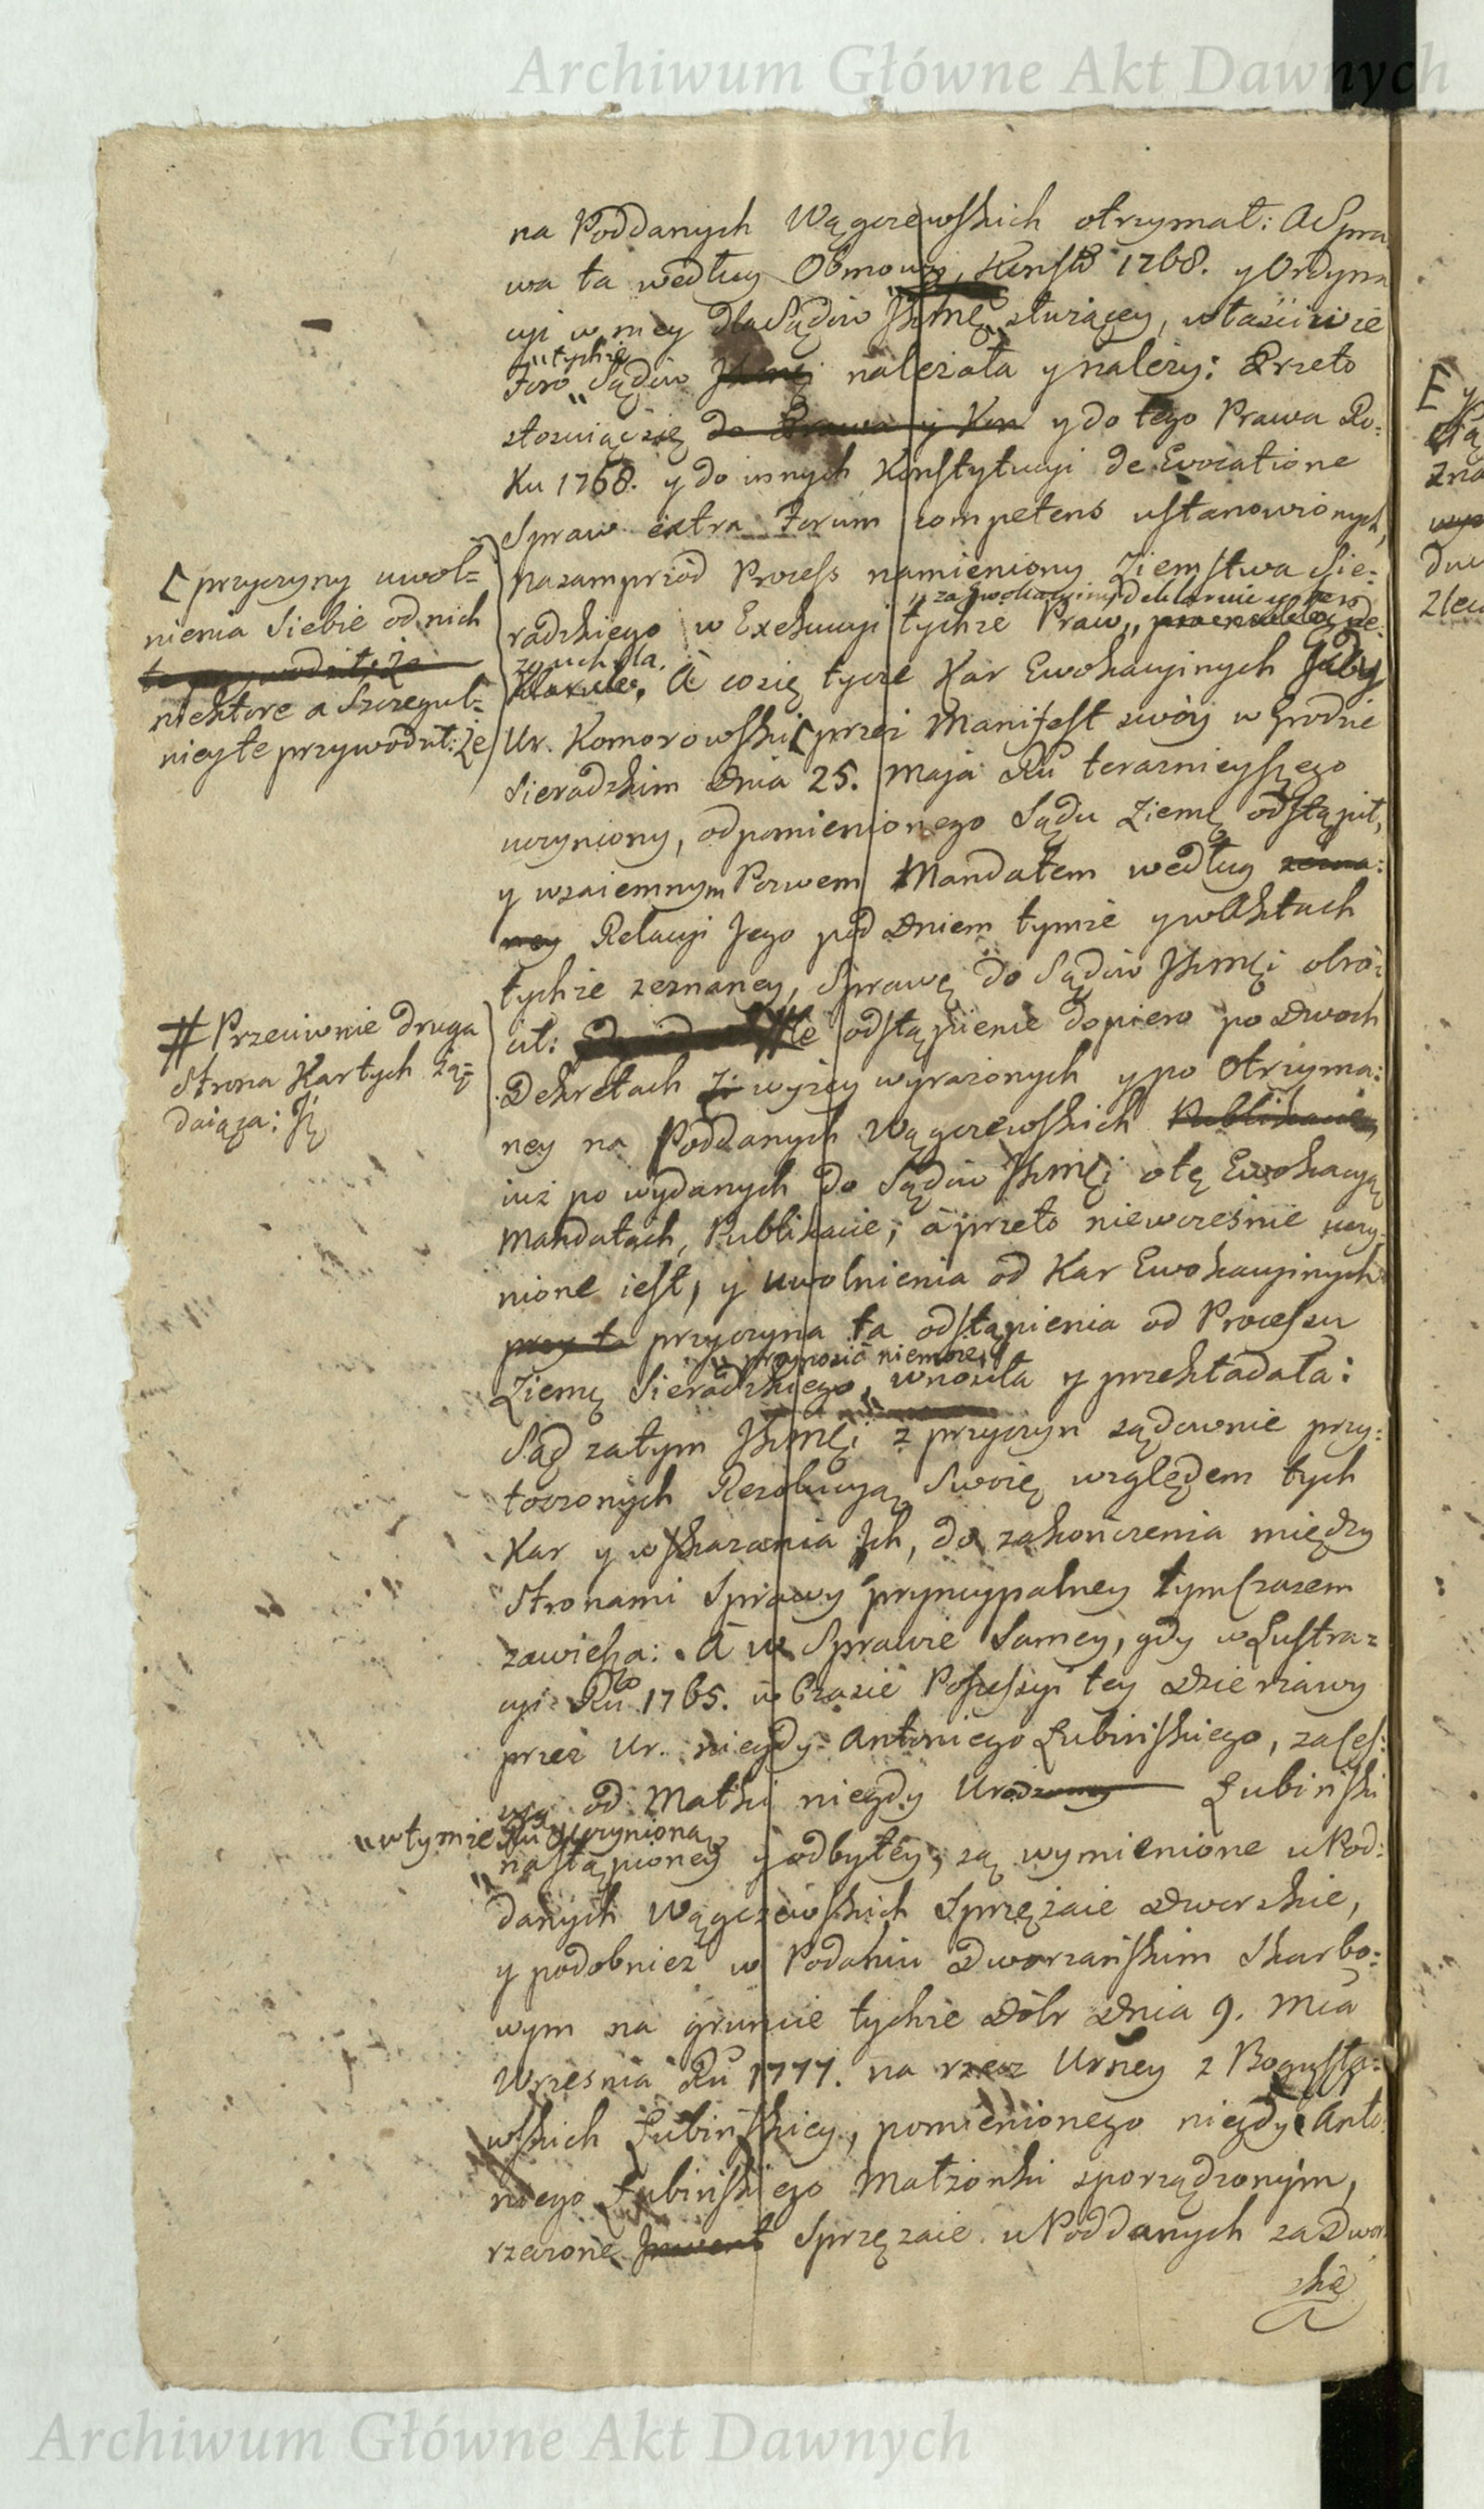 Archiwum Główne Akt Dawnych
na Poddanych Wągczewskich otrzymał: A Spra
wa ta według Obmowy Konstŏ 1768. y Ordyna
cyi w niey dla Sądów JKmci służącey, właściwie
„tychże
Foro „Sądów JKmci należała y należy: Przeto
stosuiąc się do Prawa y Kon y do tego Prawa Ro=
ku 1768. y do innych Konstytucyi de Evocatione
Spraw extra Forum competens ustanowionych,
nazamprzód Process namieniony Ziemstwa Sie=
„za Ewokacyiny deklaruie y
radzkiego w Exekucyi tychże Praw,, de=
klaruie. A co się tycze Kar Ewokacyinych gdy
Ur. Komorowski [ przez Manifest swóy w Grodzie
Sieradzkim Dnia 25. Maja Ru teraznieyszego
uczyniony, od pomienionego Sądu Ziemę odstąpił,
y wzaiemnym Pozwem Mandatem według zezna=
ney Relacyi Jego pod Dniem tymże y w Aktach
tychże zeznaney, Sprawę do Sądów JKmci obró=
cił: # te odstąpienie dopiero po dwoch
Dekretach Zi wyżey wyrażonych y po otrzyma=
ney na Poddanych Wągczewskich Publikacie,
iuż po wydanych do Sądów JKmci o tę Ewokacyą
Mandatach, Publikacie, a przeto niewcześnie uczy=
nione iest, y uwolnienia od Kar Ewokacyinych
przy ta przyczyna ta odstąpienia od Processu
„przynosić niemoże,
Ziemę Sieradzkiego, „wnosiła y przekładała:
Sąd zatym JKmci z przyczyn sądownie przy=
toczonych Rezolucyą Swoię względem tych
Kar y wskazania Ich, do zakończenia między
Stronami Sprawy pryncypalney tymczasem
zawiesza: A w Sprawie samey, gdy w Lustra=
cyi Ru 1765. w Czasie Possessyi tey Dzierżawy
przez Ur. niegdy Antoniego Łubińskiego, za Ces=
syą od Matki niegdy Urodzoney Łubiński
„w tymże Ru uczynioną
nastąpioney y odbytey, są wymienione u Pod=
danych Wągczewskich Sprzężaie Dworskie,
y podobnież w Podaniu Dworzańskim Skarbo=
wym na gruncie tychże Dóbr Dnia 9. Mca
Wrzesnia Ru 1777. na rzecz Urney z Bogusła=
wskich Łubińskiey, pomienionego niegdy Anto
niego Łubińskiego Małżonki sporządzonym,
rzeczone Inwent Sprzężaie u Poddanych za Dwor
skie
[ przyczyny uwol=
nienia siebie od nich
te przywodził; że
niektore a szczegul=
niey te przywodził: że
# Przeciwnie druga
Strona Kar tych żą=
daiąca: Jż
Archiwum Główne Akt Dawnych